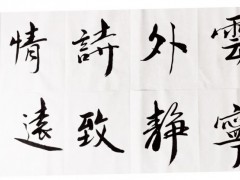 雲外詩情
寧静致遠